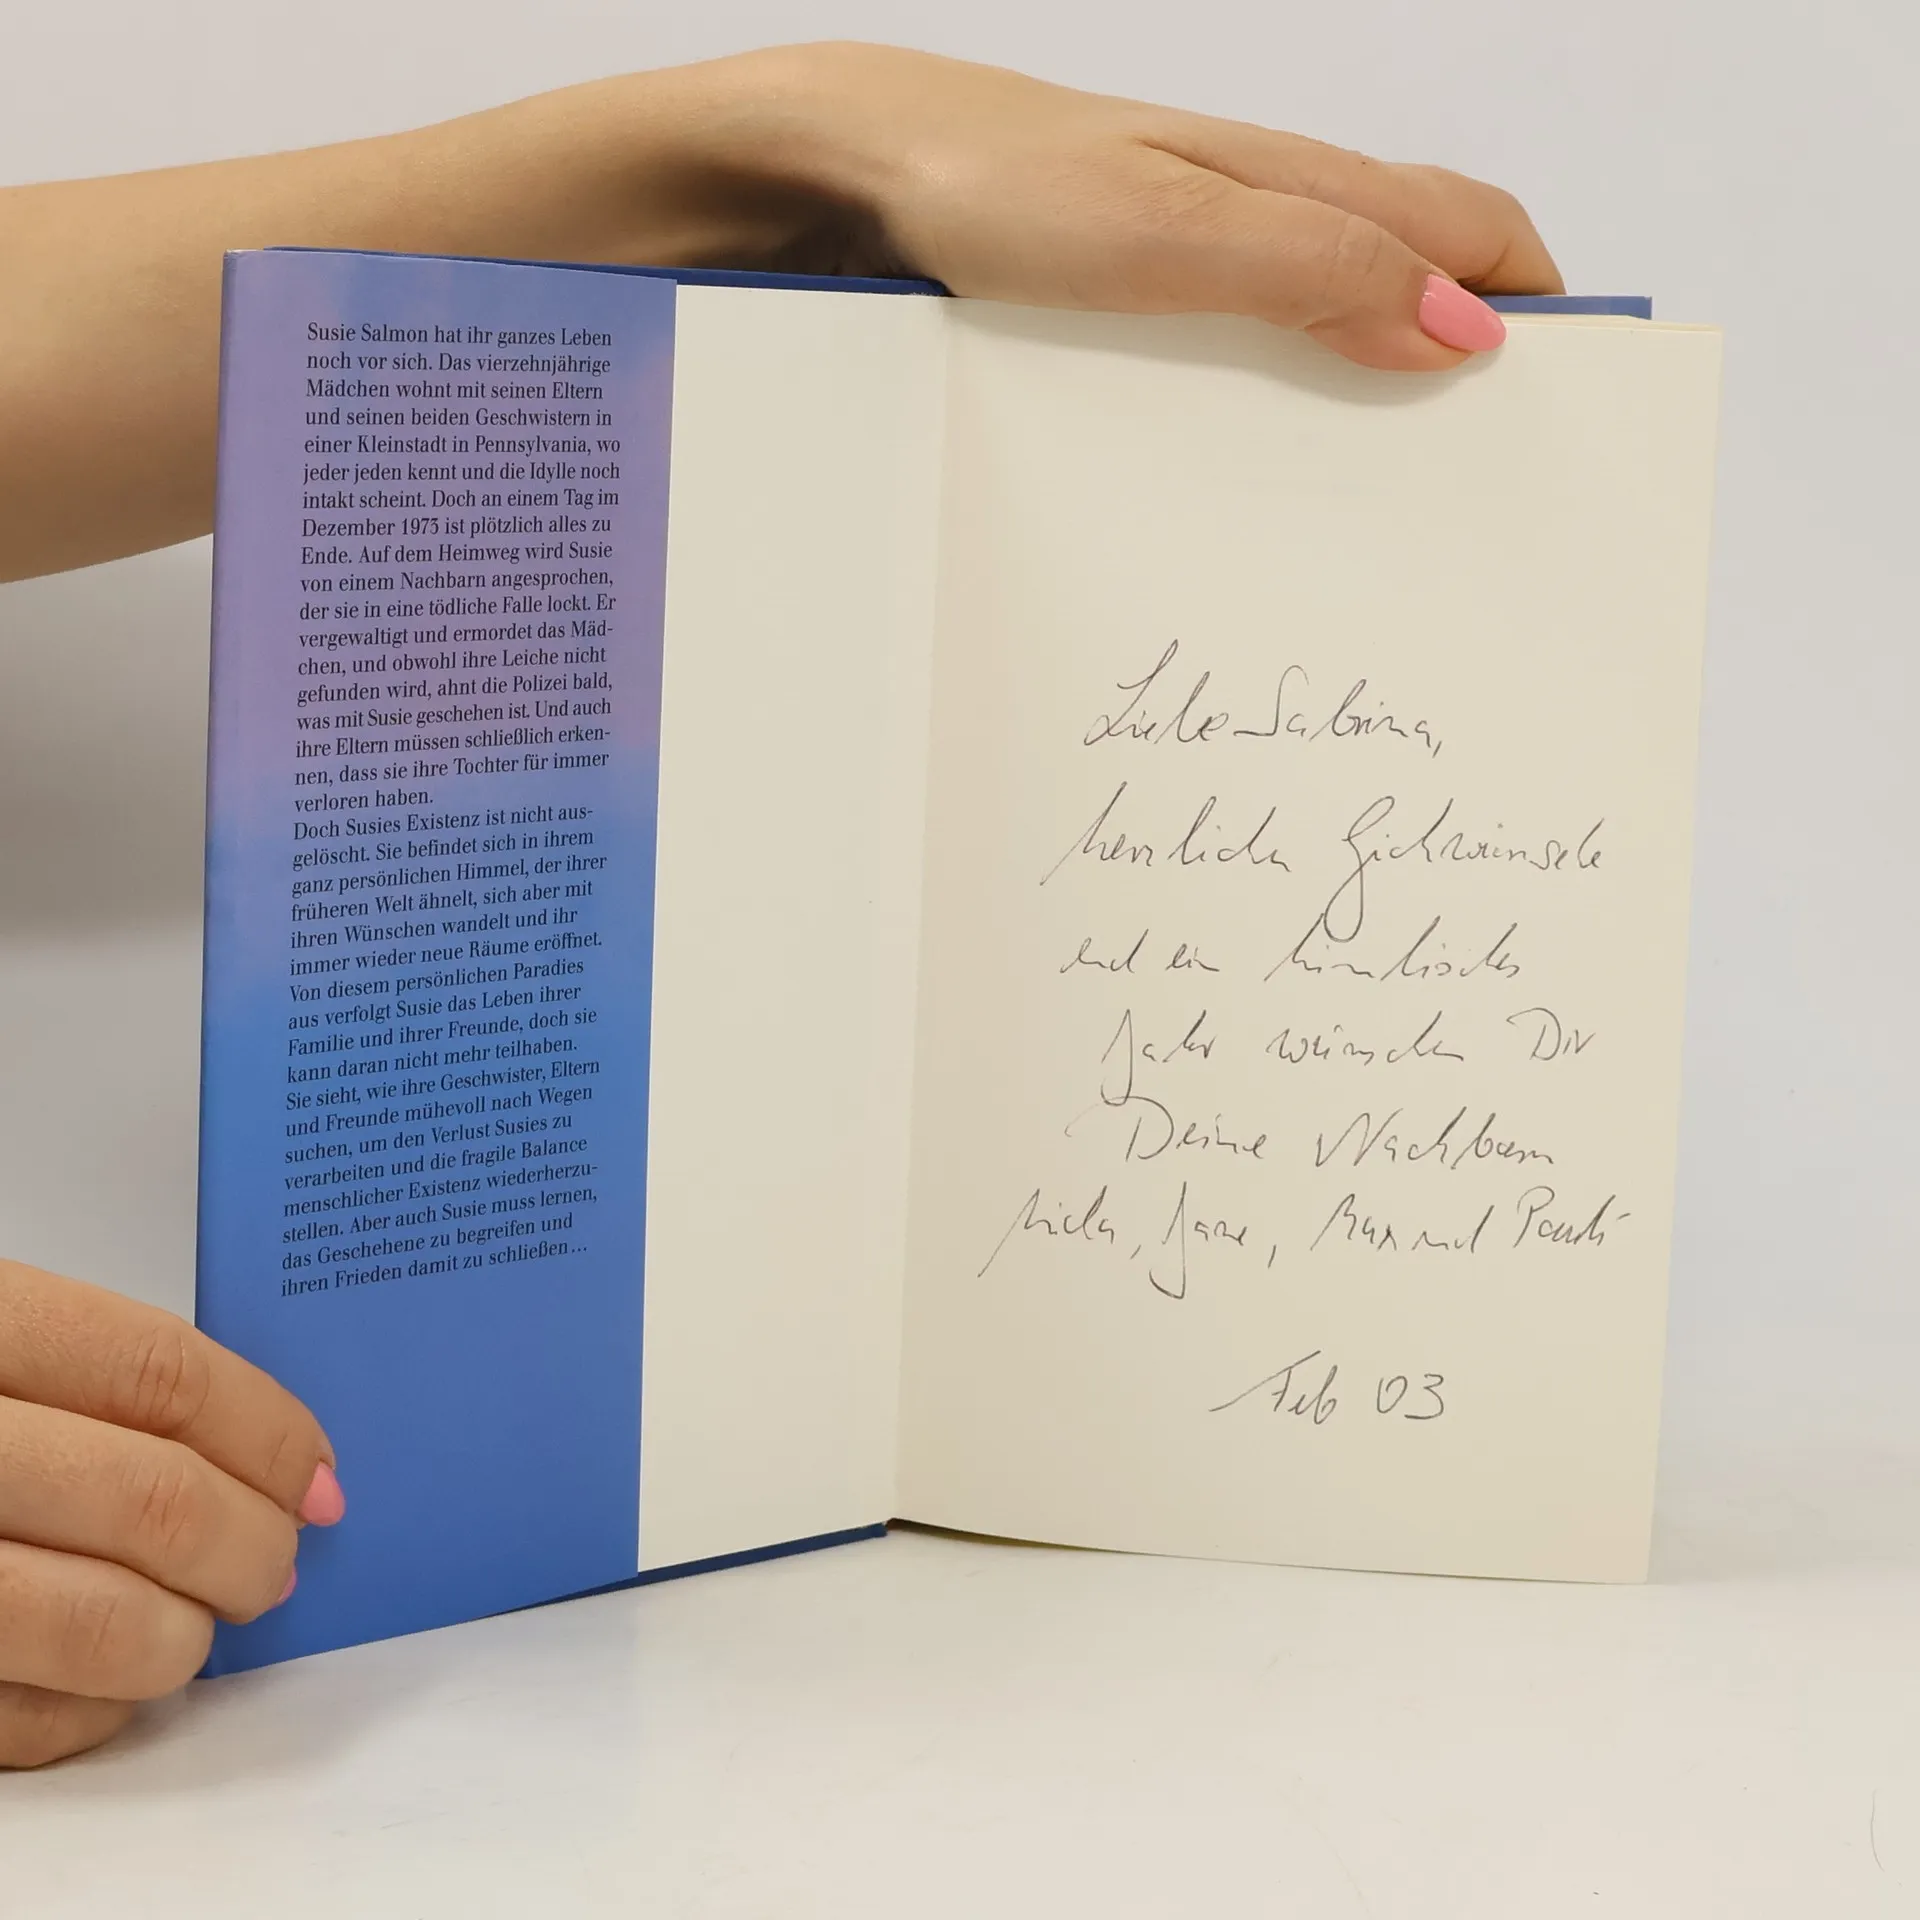 Susie Salmon hat ihr ganzes Leben
noch vor sich. Das vierzehnjährige
Mädchen wohnt mit seinen Eltern
und seinen beiden Geschwistern in
einer Kleinstadt in Pennsylvania, wo
jeder jeden kennt und die Idylle noch
intakt scheint. Doch an einem Tag im
Dezember 1973 ist plötzlich alles zu
Ende. Auf dem Heimweg wird Susie
von einem Nachbarn angesprochen,
der sie in eine tödliche Falle lockt. Er
vergewaltigt und ermordet das Mäd-
chen, und obwohl ihre Leiche nicht
gefunden wird, ahnt die Polizei bald,
was mit Susie geschehen ist. Und auch
ihre Eltern müssen schließlich erken-
nen, dass sie ihre Tochter für immer
verloren haben.
Doch Susies Existenz ist nicht aus-
gelöscht. Sie befindet sich in ihrem
ganz persönlichen Himmel, der ihrer
früheren Welt ähnelt, sich aber mit
ihren Wünschen wandelt und ihr
immer wieder neue Räume eröffnet.
Von diesem persönlichen Paradies
aus verfolgt Susie das Leben ihrer
Familie und ihrer Freunde, doch sie
kann daran nicht mehr teilhaben.
Sie sieht, wie ihre Geschwister, Eltern
und Freunde mühevoll nach Wegen
suchen, um den Verlust Susies zu
verarbeiten und die fragile Balance
menschlicher Existenz wiederherzu-
stellen. Aber auch Susie muss lernen,
das Geschehene zu begreifen und
ihren Frieden damit zu schließen...
Liebe Sabrina,
herzlichen Glückwünsche
und ein himmlisches
Jahr wünschen Dir
Deine Nachbarn
, Jane, Max und
Feb 03